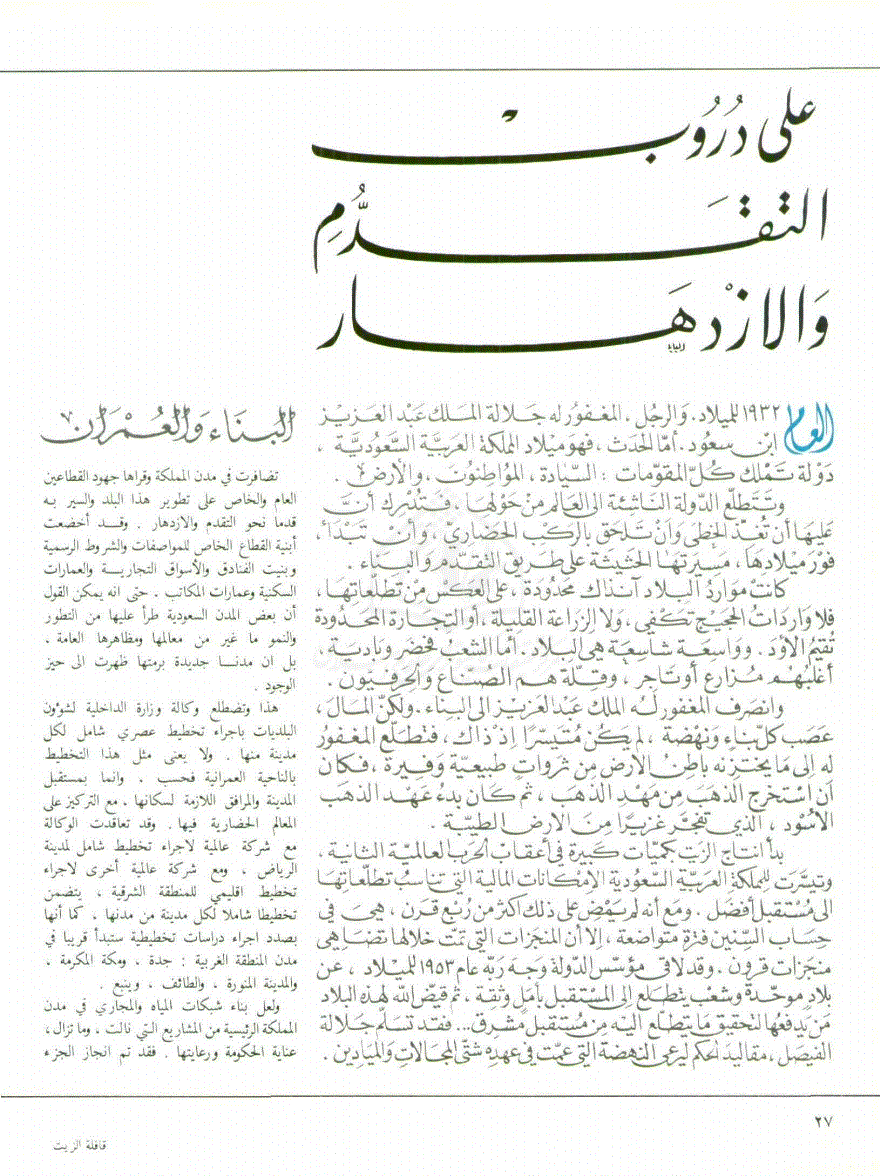 على دُرُوب
التقَدُّمِ
وَالازْدهَار
العام ١٩٣٢ للميلاد. وَالرجُل، المغفورُ له جَلالة المَلك عَبْد العَزيز
ابْن سعُود. أمّا الحَدَث، فهوَ ميْلاد المملكة العَرَبيَّة السَّعُوديَّة،
دَوْلة تَمْلك كُلّ المقوّمات : السّيَادة، المُوَاطنُونَ، وَالأرضْ.
وتَتَطلّع الدّولة النّاشئة الى العَالم منْ حَوْلهَا، فَتُدْرك أنَّ
عَليهَا أن تُغذّ الخُطى وَانْ تلحَق بالركبْ الحضَاريّ، وَأنْ تَبْدَأ،
فَوْر ميْلادهَا، مَسيْرتهَا الحَثيثَة عَلى طَريق التقَدّم وَالبنَاء.
كانتْ موَاردُ البلاد آنذاك محَدُودَة، عَلى العَكس منْ تطلّعَاتهَا،
فلا وَاردَاتُ الحَجيْج تكفي، وَلا الزرَاعة القَليلة، أو التجَارة المحَدُودة
تُقيمُ الأوَد. ووَاسعَة شاسعَة هيَ البلاد. أمّا الشعبُ فحَضر وَبَاديَة،
أغلبُهُم مُزارع أوتَاجر، وَقلّة هم الصُنّاع وَالحرَفيّون.
وانصَرف المغفور لَه الملك عَبْد العَزيز الى البنَاء. وَلكنّ المَالَ،
عَصَب كلّ بنَاءٍ وَنهْضَة، لم يَكُن مُتيَسّرًا إذ ذَاك، فتطلّع المغفورُ
له إلى مَا يَختزنه بَاطنُ الارض من ثروَاتٍ طبيعيّة وَفيرة، فكان
ان اسْتَخرج الذهَبَ من مَهْد الذهَب، ثم كان بدءُ عَهْد الذهَب
الأسْوَد، الذي تفجّر غزيرًا منَ الارض الطيّبَة.
بدأ انتاج الزيت بكميّات كبيرَة في أعقاب الحَرب العَالميّة الثانيَة،
وتيَسّرَت للمملكة العَربيّة السّعُودية الإمْكانات الماليَة التي تناسبُ تطلّعَاتهَا
الى مُسْتقبلٍ أفضَل. وَمَع أنه لم يَمْض عَلى ذلك اكثر من رُبْع قرن، هيَ في
حسَاب السّنين فترة متوَاضعَة، إلا أن المنجزات التي تمّت خلالهَا تضَاهي
منجزَات قرون. وَقد لاقى مؤسّس الدّولة وَجهَ رَبّه عَام ١٩٥٣ للميْلاد، عن
بلادٍ موَحّدة وَشعبٍ يَتطلع إلى المسْتقبل بأملٍ وَثقة، ثم قيّض الله لهَذه البلاد
مَن يَدفعُها لتحقيق مَا يتطلّع اليه من مُسْتقبل مُشرق... فقد تسَلّم جلالة
الفيصَل، مقاليد الحكم ليَرعى النهضة التي عمّت في عَهده شتّى المجَالات وَالميَادين.
البنَاء وَالعُمْرَان
تضافرت في مدن المملكة وقراها جهود القطاعين
العام والخاص على تطوير هذا البلد والسير به
قدما نحو التقدم والازدهار . وقد أخضعت
أبنية القطاع الخاص للمواصفات والشروط الرسمية
وبنيت الفنادق والأسواق التجارية والعمارات
السكنية وعمارات المكاتب . حتى انه يمكن القول
أن بعض المدن السعودية طرأ عليها من التطور
والنمو ما غير من معالمها ومظاهرها العامة .
بل ان مدنا جديدة برمتها ظهرت الى حيز
الوجود .
هذا وتضطلع وكالة وزارة الداخلية لشؤون
البلديات باجراء تخطيط عصري شامل لكل
مدينة منها . ولا يعنى مثل هذا التخطيط
بالناحية العمرانية فحسب . وانما بمستقبل
المدينة والمرافق اللازمة لسكانها . مع التركيز على
المعالم الحضارية فيها . وقد تعاقدت الوكالة
مع شركة عالمية لاجراء تخطيط شامل لمدينة
الرياض . ومع شركة عالمية أخرى لاجراء
تخطيط اقليمي للمنطقة الشرقية ، يتضمن
تخطيطا شاملا لكل مدينة من مدنها . كما أنها
بصدد اجراء دراسات تخطيطية ستبدأ قريبا في
مدن المنطقة الغربية : جدة ، ومكة المكرمة .
والمدينة المنورة . والطائف . وينبع .
ولعل بناء شبكات المياه والمجاري في مدن
المملكة الرئيسية من المشاريع التي نالت ، وما تزال ،
عناية الحكومة ورعايتها . فقد تم انجاز الجزء
٢٧
قافلة الزيت